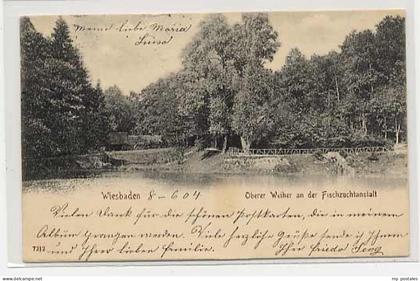 Meine liebe Maria
Luise
Wiesbaden 8-6 04 Oberer Weiher an der Fischzuchtanstalt
Vielen Dank für die schönen Postkarten, die in meinem
Album prangen werden. Viele herzliche Grüße sende ich Ihnen
und Ihrer lieben Familie. Ihr Frieda
7212